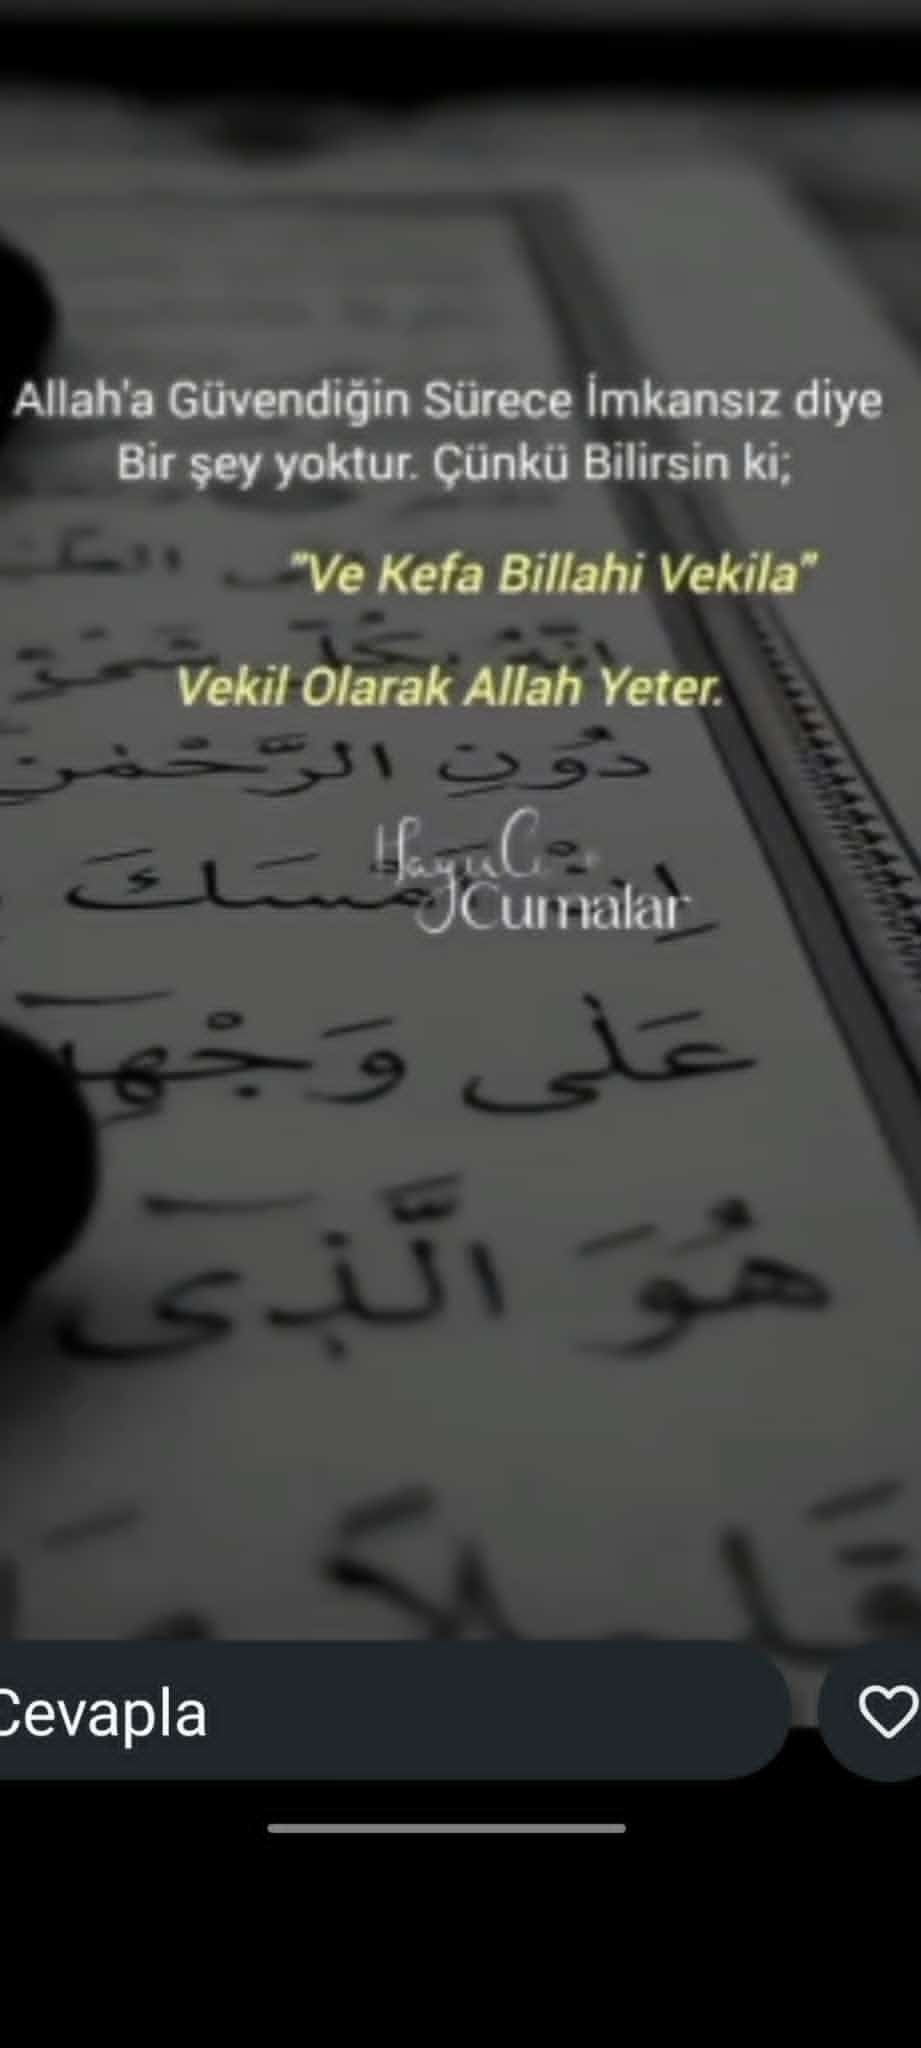 Allah'a Güvendiğin Sürece İmkansız diye
Bir şey yoktur. Çünkü Bilirsin ki;
"Ve Kefa Billahi Vekila"
Vekil Olarak Allah Yeter.
دُونِ الرَّحْمٰنِ
Hayırlı
Cumalar
اِنْ اَمْسَكَ
عَلٰى وَجْهِهٖ
هُوَ الَّذٖى
قَلٖيلاً مَا
Cevapla